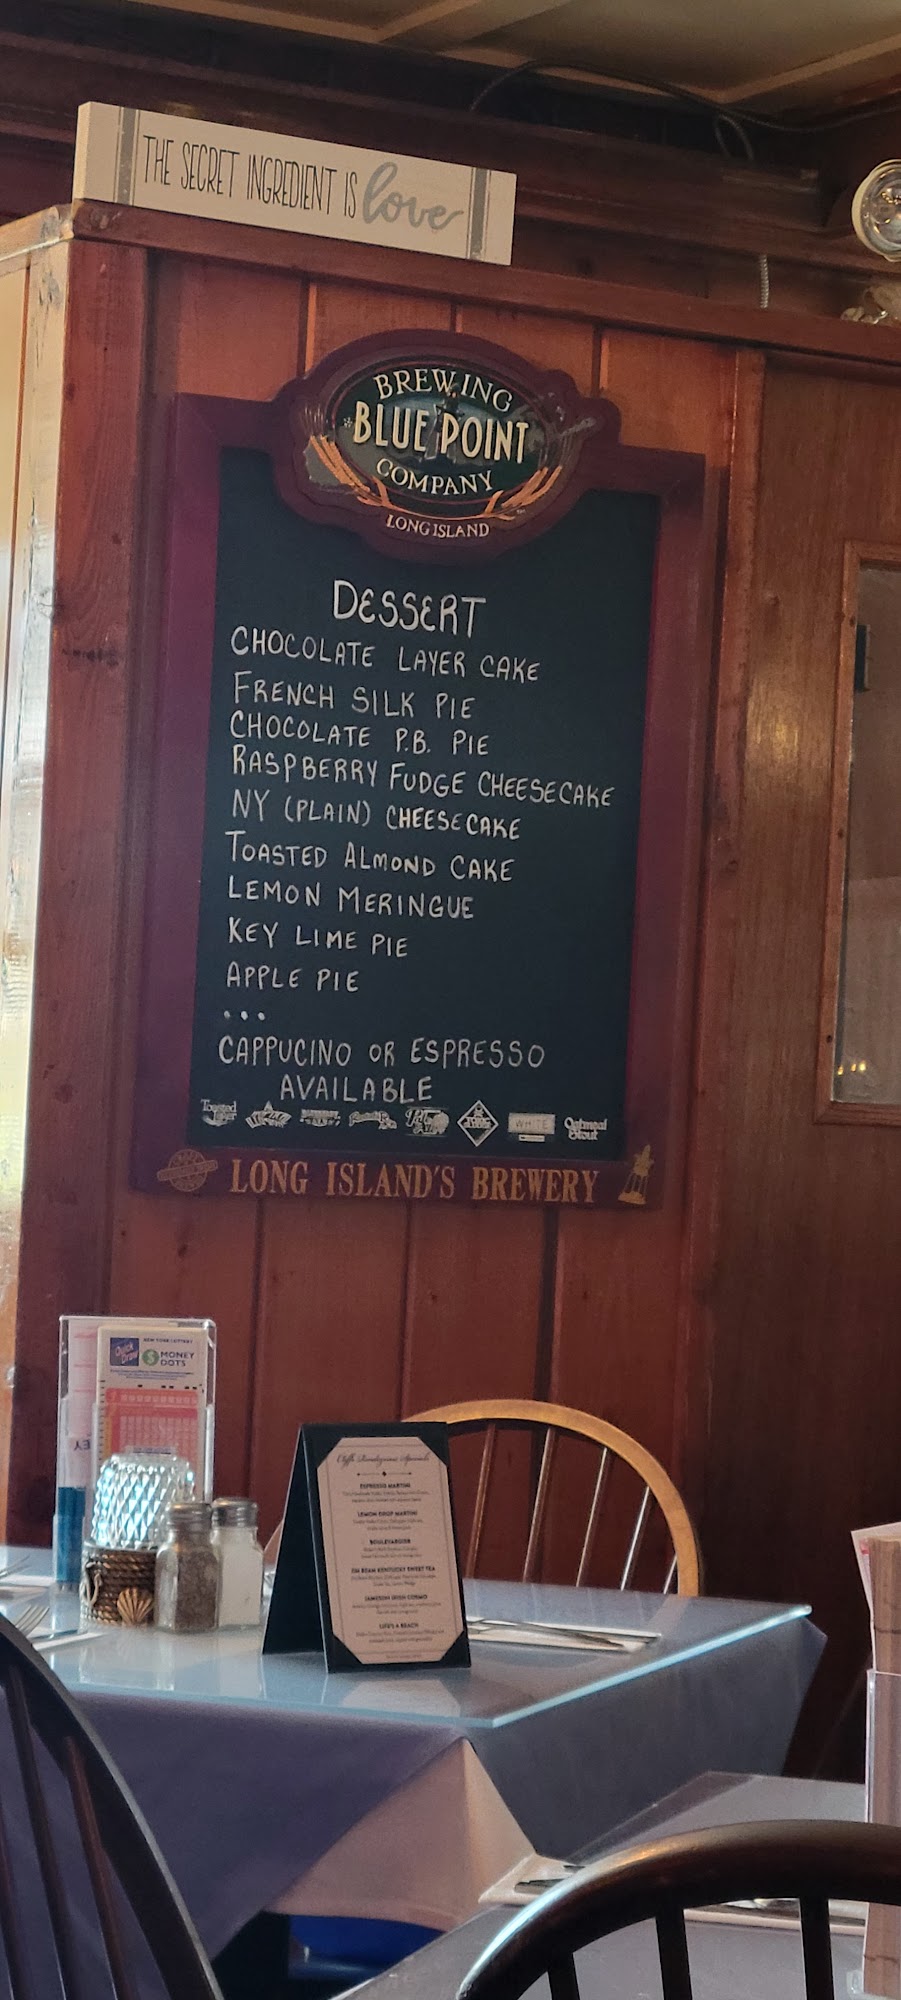 THE SECRET INGREDIENT IS love
BREWING
BLUE POINT
COMPANY
LONG ISLAND
DESSERT
CHOCOLATE LAYER CAKE
FRENCH SILK PIE
CHOCOLATE P.B. PIE
RASPBERRY FUDGE CHEESECAKE
NY (PLAIN) CHEESECAKE
TOASTED ALMOND CAKE
LEMON MERINGUE
KEY LIME PIE
APPLE PIE
...
CAPPUCINO OR ESPRESSO
AVAILABLE
Toasted Lager
WHITE
Oatmeal Stout
LONG ISLAND'S BREWERY
NEW YORK LOTTERY
Quick Draw
$ MONEY DOTS
Cliff's Rendezvous Specials
ESPRESSO MARTINI
LEMON DROP MARTINI
BOULEVARDIER
JIM BEAM KENTUCKY SWEET TEA
JAMESON IRISH COSMO
LIFE'S A BEACH